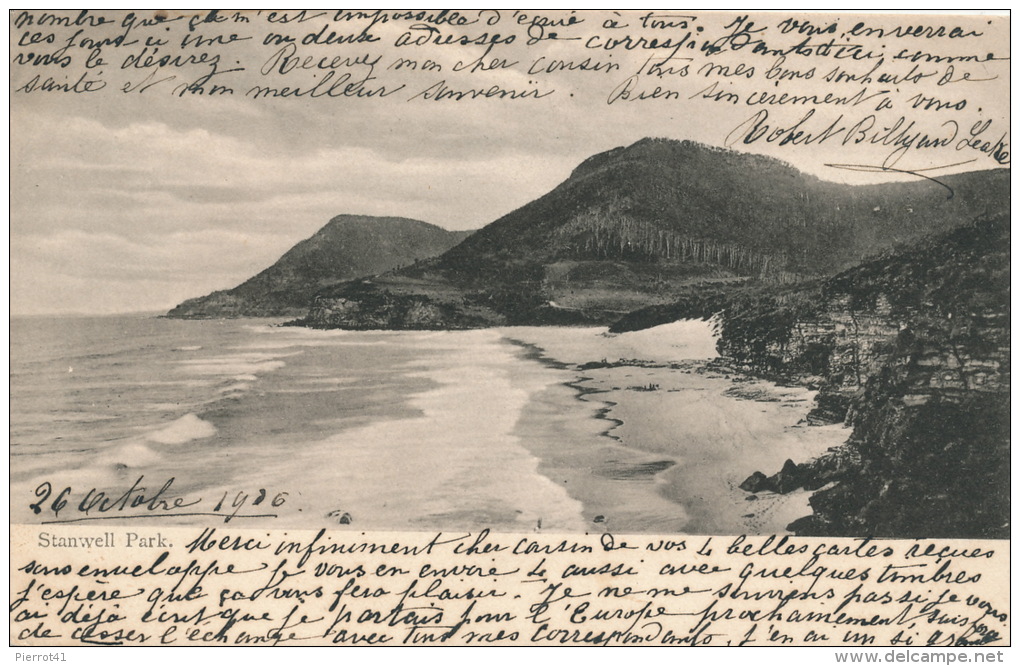 26 Octobre 1906
Stanwell Park.
Merci infiniment cher cousin de vos 4 belles cartes reçues
sans enveloppe je vous en envoie 4 aussi avec quelques timbres
j'espère que ça vous fera plaisir. Je ne me souviens pas si je vous
ai déjà écrit que je partais pour l'Europe prochainement, suis
de cesser l'échange avec tous mes correspondants, j'en ai un si grand
nombre que ça m'est impossible d'écrire à tous. Je vous enverrai
ces jours ci une ou deux adresses de correspondants d'ici comme
vous le désirez. Recevez mon cher cousin tous mes bons souhaits de
santé et mon meilleur souvenir. Bien sincèrement à vous.
Robert Billyard Leake
Pierrot41
www.delcampe.net